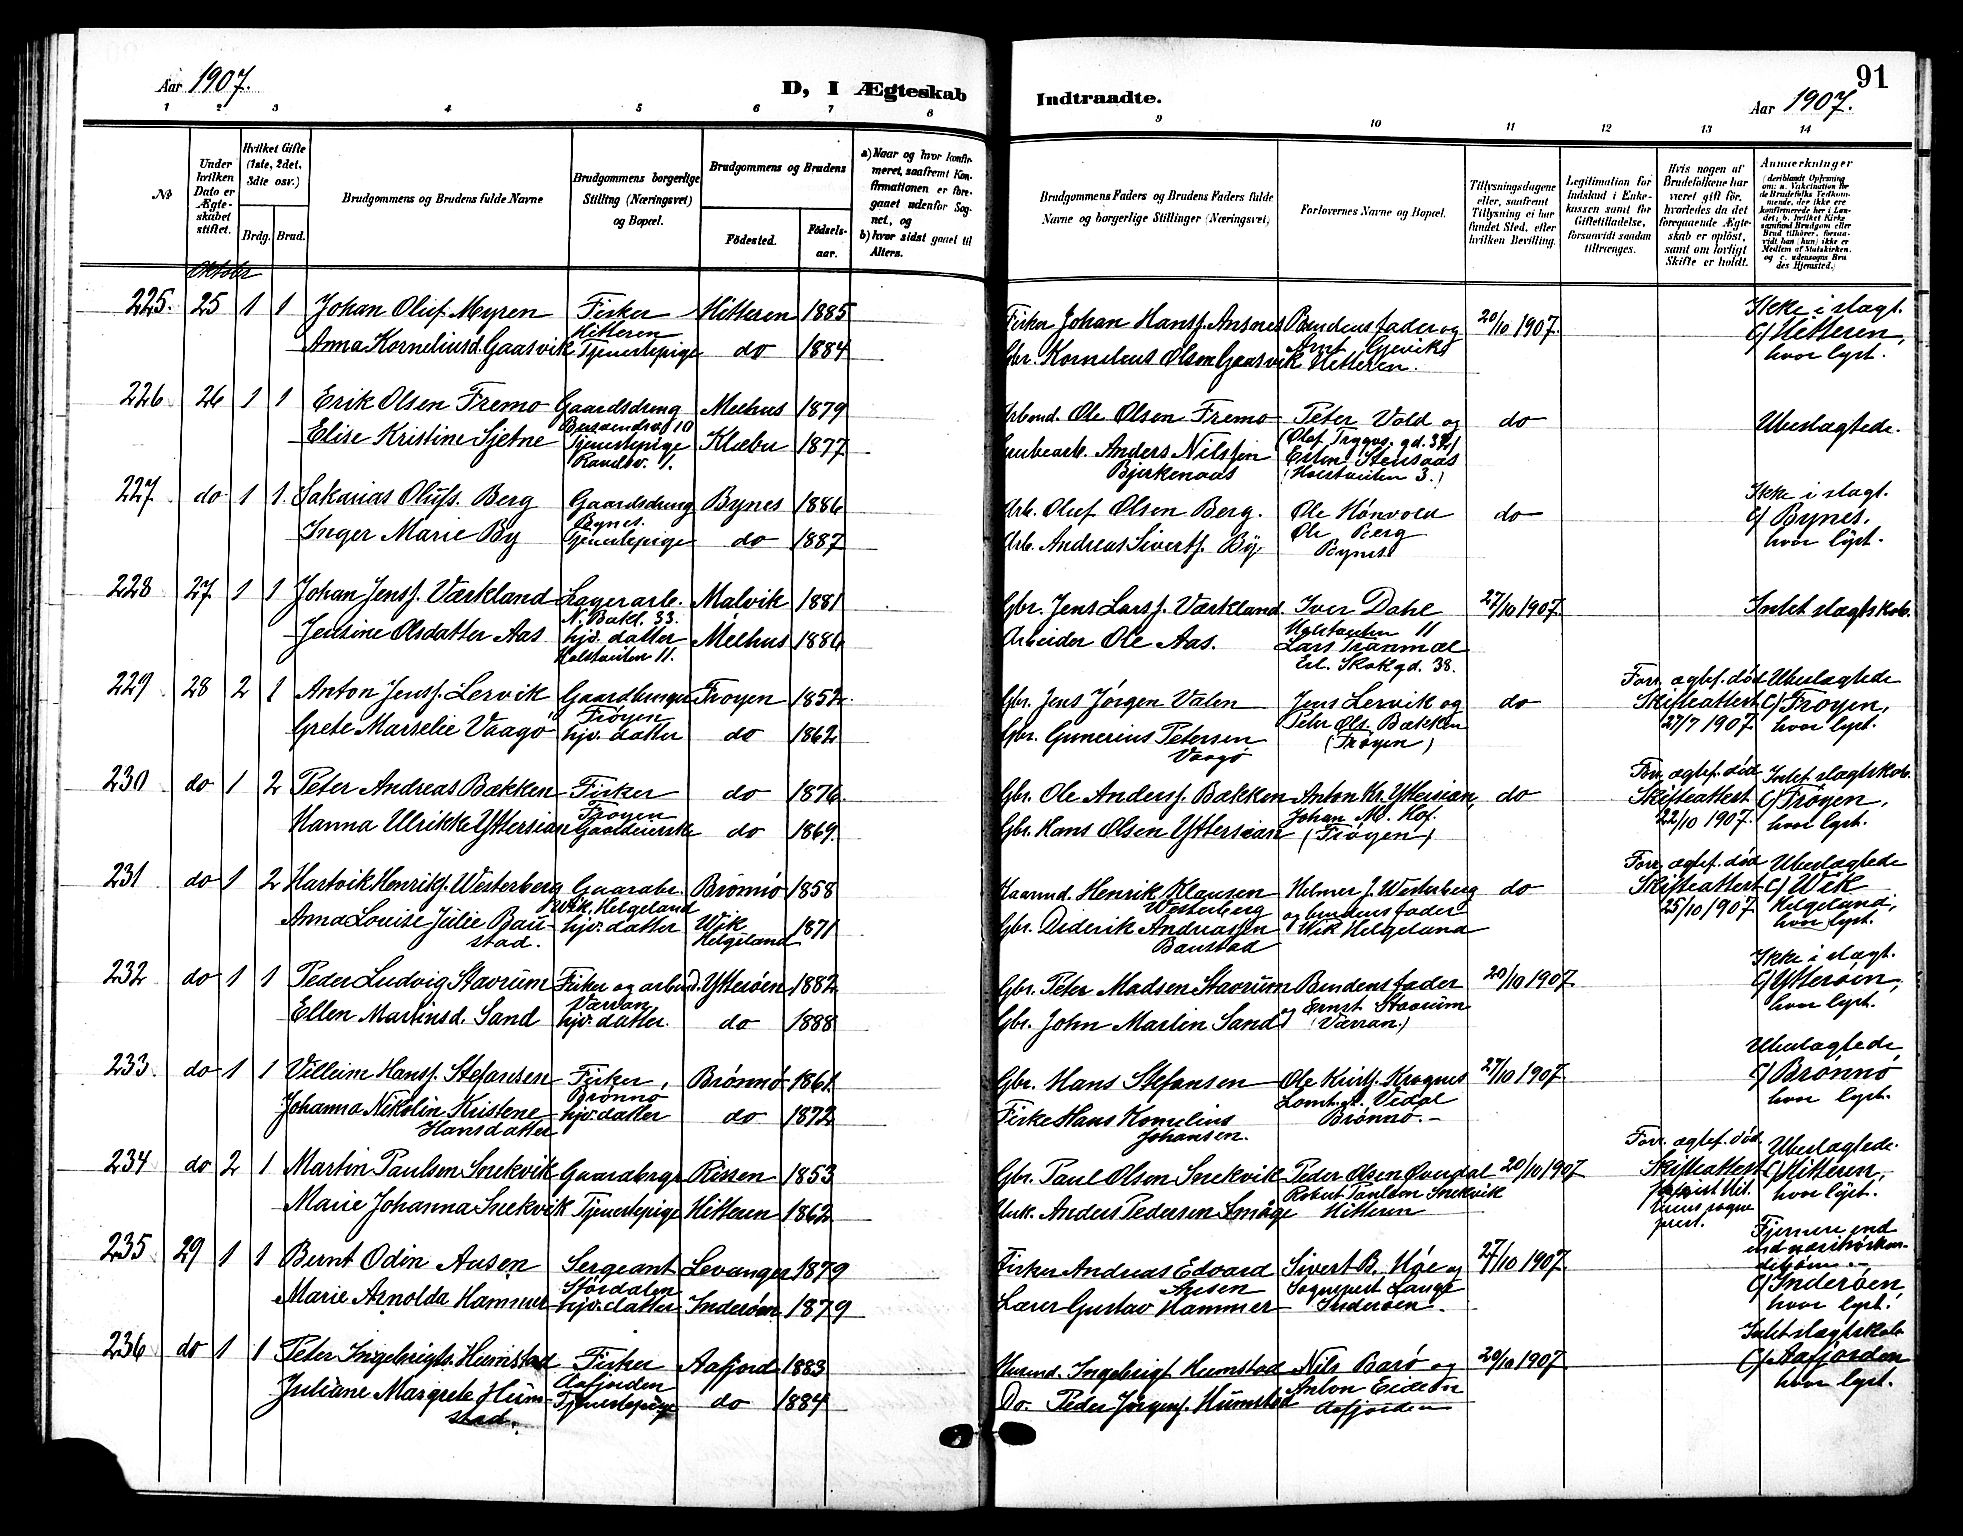 91
Aar 1907.
D, I Ægteskab
Indtraadte.
Aar 1907.
1 2 3 4 5 6 7 8 9 10 11 12 13 14
No
Under hvilken Dato er Ægteskabet stiftet.
Hvilket Gifte (1ste, 2det, 3die osv.)
Brdg. Brud.
Brudgommens og Brudens fulde Navne
Brudgommens borgerlige Stilling (Næringsvei) og Bopæl.
Brudgommens og Brudens
Fødested.
Fødselsaar.
a) Naar og hvor konfirmeret, saafremt Konfirmationen er foregaaet udenfor Sognet, og
b) hvor sidst gaaet til Alters.
Brudgommens Faders og Brudens Faders fulde Navne og borgerlige Stillinger (Næringsvei)
Forlovernes Navne og Bopæl.
Tillysningsdagene eller, saafremt Tillysning ei har fundet Sted, efter hvilken Bevilling.
Legitimation for Indskud i Enkekassen samt for Giftetilladelse, forsaavidt saadan tiltrænges.
Hvis nogen af Brudefolkene har været gift før, hvorledes da det foregaaende Ægteskab er opløst, samt om lovligt Skifte er holdt.
Anmærkninger
Oktober
225. 25 1 1 Johan Oluf Myren Fisker Hitteren 1885 Fisker Johan Hansf. Ansnes Brudens fader og 20/10 1907. Ikke i slagt.
Hitteren Gjevik C/ Hitteren,
Anna Korneliusd. Gaasvik Tjenestepige do 1884 Gbr. Kornelius Olsen Gaasvik Hitteren. hvor lyst.
226 26 1 1 Erik Olsen Fremo Gaardsdreng Melhus 1879 Arbmd. Ole Olsen Fremo Peter Vold og do Ubeslægtede.
(Olaf Trygvs. gd.
Elise Kristine Sjetne Tjenestepige Klæbu 1877 Anders Nilssen
Bjerkenaas
227 do 1 1 Sakarias Olufs. Berg Gaardsdreng Bynes 1886 Arb. Oluf Olsen Berg. Ole do Ikke i slagt.
Bynes. Ole Berg C/ Bynes,
Inger Marie By Tjenestepige do 1887 Arb. Andreas Sivertf. By Bynes hvor lyst.
228 27 1 1 Johan Jensf. Værkland Lagerarb. Malvik 1881 Gbr. Jens Larsf. Værkland Iver Dahl 27/10 1907. Intet slagtskab.
N. Bakl. 33. 11
Jensine Olsdatter Aas hjv. datter Melhus 1886 Arbeider Ole Aas. Lars Tranmæl
11. Erl. Skakgd. 38.
229 28 2 1 Anton Jensf. Lervik Gaardbruger Frøyen 1852 Gbr. Jens Jørgen Valen Jens Lervik og do Forr. ægtef. død Ubeslægtede
Frøyen Peter Ols. Bækken Skifteattest C/ Frøyen,
Grete Marselie Vaagø hjv. datter do 1862 Gbr. Gunerius Petersen (Frøyen) 27/7 1907. hvor lyst.
Vaagø
230 do 1 2 Peter Andreas Bækken Fisker do 1876 Gbr. Ole Andersf. Bækken Anton Kr. Yttersian do Forr. ægtef. død Intet slagtskab.
Frøyen Johan M. Hof. Skifteattest C/ Frøyen,
Hanna Ulrikke Yttersian do 1869. Gbr. Hans Olsen Yttersian (Frøyen) 22/10 1907. hvor lyst.
231 do 1 2 Hartvik Henrikf. Westerberg Gaardbr. Brønnø 1858 Henrik Klausen Helmer J. Westerberg do Forr. ægtef. død Ubeslægtede
Wik. Helgeland Westerberg og brudens fader Skifteattest C/ Wik
Anna Louise Julie Bau- hjv. datter Wik 1871 Gbr. Diderik Andreassen Wik Helgeland 25/10 1907 Helgeland,
stad. Helgeland Baustad hvor lyst.
232 do 1 1 Peder Ludvig Stavrum Fisker og arbeid. Ytterøen 1882 Gbr. Peter Madsen Stavrum Brudens fader 20/10 1907. Ikke i slagt.
Værran og Ernst Stavrum C/ Ytterøen,
Ellen Martinsd. Sand hjv. datter. do 1888 Gbr. John Martin Sand (Værran.) hvor lyst.
233. do 1 1 Villum Hansf. Stefansen Fisker, Brønnø 1861. Gbr. Hans Stefansen Ole Krognes 27/10 1907. Ubeslægtede
Brønnø Vidal C/ Brønnø
Johanna Nikolin Kristene hjv. datter do 1872 Fisker Hans Kornelius Brønnø. hvor lyst.
Hansdatter Johansen.
234 do 2 1 Martin Paulsen Snekvik Gaardbrgr Rissen 1853 Gbr. Paul Olson Snekvik Peder Olsen 20/10 1907 Forr. ægtef. død Ubeslægtede.
Robert Paulson Snekvik Skifteattest C/ Hitteren,
Marie Johanna Snekvik Tjenestepige Hitteren 1862 Anders Pedersen Småge Hitteren hvor lyst.
235 29 1 1 Bernt Odin Ausen Sergeant Levanger 1879 Fisker Andreas Edvard Sivert B. Høe og 27/10 1907. Fjernere end
Stjørdalen Ausen Sognepst Lange C/ Inderøen,
Marie Arnolda Hammer hjv. datter Inderøen 1879 Lærer Gustav Hammer Inderøen. hvor lyst.
236 do 1 1 Peter Ingebrigts. Humstad Fisker Aafjord 1883 Husmd. Ingebrigt Humstad Nils Barø og 20/10 1907 Intet slagtskab
Aafjorden Anton Eide C/ Aafjorden
Juliane Margrete Hum- Tjenestepige do 1884 Do. Peder Jørgensf. Humstad Aafjorden hvor lyst.
stad.